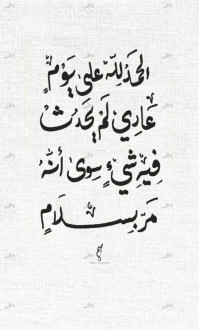 الحمدُ للّٰه على يَوْمٍ
عَادِي لَمْ يَحْدُثْ
فِيهِ شَيْءٍ سِوىٰ أنّهُ
مَرّ بِسَلَامٍ